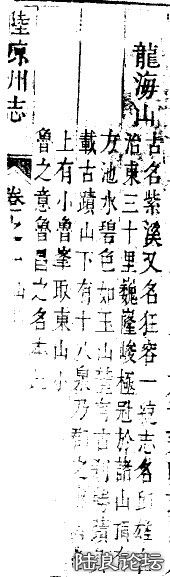 龍海山古名紫溪又名狂容一統志名邱雄
治東三十里巍巃峻極冠於諸山頂有
池水碧色如玉山麓有古刹
載古蹟山下有十八泉乃
上有小魯峯取東山小
魯之意魯昌之名本此
陸凉州志
卷之一
陆良论坛